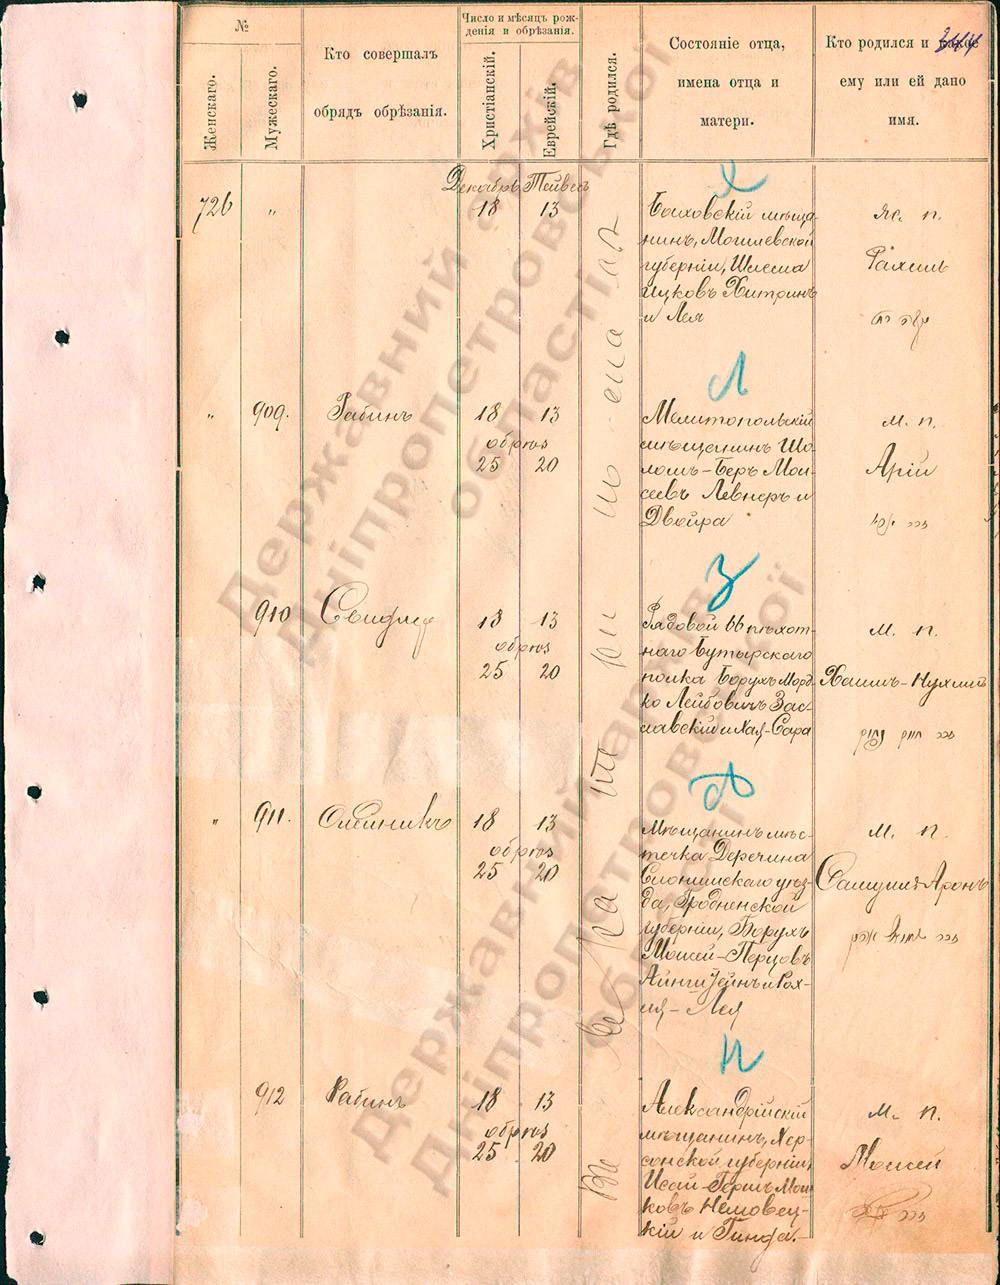 №
Женскаго.
Мужескаго.
Кто совершалъ
обрядъ обрѣзанія.
Число и мѣсяцъ рож-
денія и обрѣзанія.
Христіанскій.
Еврейскій.
Гдѣ родился.
Состояніе отца,
имена отца и
матери.
Кто родился и какое
ему или ей дано
имя.
Декабрь Тейвесъ
726 " 18 13
Быховскій мѣща-
нинъ, Могилевской
губерніи, Шлема
Ицковъ Хитринъ
и Лея
ж. п.
Рахиль
Л
" 909. Рабинъ
18 13
обрѣз
25 20
Мелитопольскій
мѣщанинъ Шо-
ломъ-Беръ Мои-
сеевъ Левнеръ и
Двойра
м. п.
Арій
З
910
18 13
обрѣз
25 20
Рядовой 66 пѣхот-
наго Бутырскаго
полка Борухъ Морд-
ко Лейбовичъ Зас-
лавскій и Хая-Сара
м. п.
Хаимъ-Нухимъ
" 911. Олейникъ
18 13
обрѣз
25 20
Мѣщанинъ мѣс-
течка Деречина
Слонимскаго уѣз-
да, Гродненской
губерніи, Борухъ
Моисей-Перцовъ
и Рох-
ля-Лея
м. п.
Самуилъ Аронъ
912 Рабинъ
18 13
обрѣз
25 20
Александрійскій
мѣщанинъ, Хер-
сонской губерніи,
Исай-Гершъ Мош-
ковъ Немовец-
кій и Гинда.-
м. п.
Моисей
Державний архів
Дніпропетровської
області
Державний архів
Дніпропетровської
області